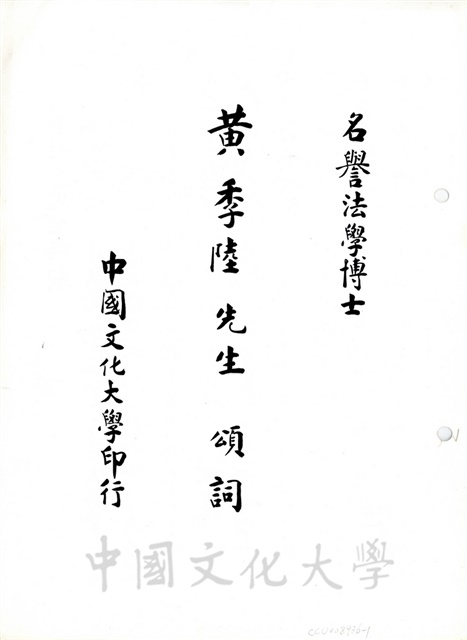 名譽法學博士
黃季陸先生 頌詞
中國文化大學印行
中國文化大學